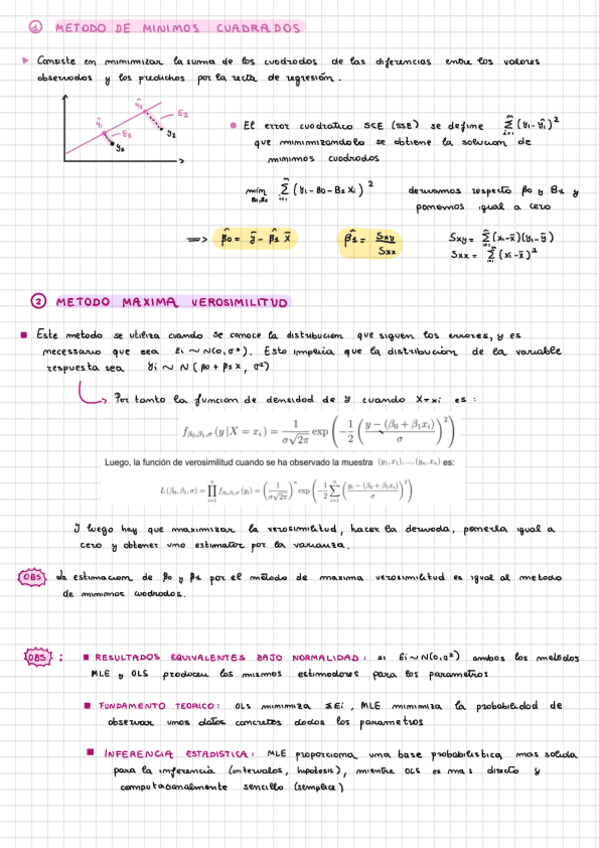 ① METODO DE MINIMOS CUADRADOS
▸ Consiste en mimimizar la suma de los cuadrados de las diferencias entre los valores
observados y los predichos por la recta de regresión.
ŷ₁ E₁ y₁ ŷ₂ E₂ y₂
• El error cuadratico SCE (SSE) se define Σ(yᵢ-ŷᵢ)²
que mimimizandolo se obtiene la solucion de
mimimos cuadrados
mim β0,β1 Σ(yᵢ - β0 - β1 xᵢ)² derivamos respecto β0 y β1 y
pomemos igual a cero
=> β̂0 = ȳ - β̂1 x̄ β̂1 = Sxy / Sxx Sxy = Σ(xᵢ-x̄)(yᵢ-ȳ)
Sxx = Σ(xᵢ-x̄)²
② METODO MAXIMA VEROSIMILITUD
▪ Este metodo se utiliza cuando se conoce la distribucion que siguen los errores, y es
necessario que sea εᵢ ~ N(0,σ²). Esto implica que la distribucion de la variable
respuesta sea yᵢ ~ N(β0 + β1x, σ²)
Por tanto la funcion de densidad de y cuando X=xᵢ es:
f_{β0,β1,σ}(y|X = xᵢ) = 1/(σ√2π) exp(-1/2 ((y - (β0 + β1xᵢ))/σ)²)
Luego, la función de verosimilitud cuando se ha observado la muestra (y₁,x₁),...,(yₙ,xₙ) es:
L(β0,β1,σ) = ∏ f_{β0,β1,σ}(yᵢ) = (1/(σ√2π))ⁿ exp(-1/2 Σ((yᵢ - (β0 + β1xᵢ))/σ)²)
Y luego hay que maximizar la verosimilitud, hacer la derivada, ponerla igual a
cero y obtener umo estimator por la varianza.
OBS La estimacion de β0 y β1 por el método de maxima verosimilitud es igual al metodo
de mimimos cuadrados.
OBS : ▪ RESULTADOS EQUIVALENTES BAJO NORMALIDAD: si Eᵢ~N(0,σ²) ambos los metodos
MLE y OLS producen los mismos estimadores para los parametros
▪ FUNDAMENTO TEORICO: OLS mimimiza SEᵢ, MLE mimimiza la probabilidad de
observar umos datos concretos dados los parametros
▪ INFERENCIA ESTADISTICA: MLE proporciona una base probabilistica mas solida
para la imferencia (intervalos, hipotesis), mientre OLS es mas directo y
computacionalmente sencillo (semplice)